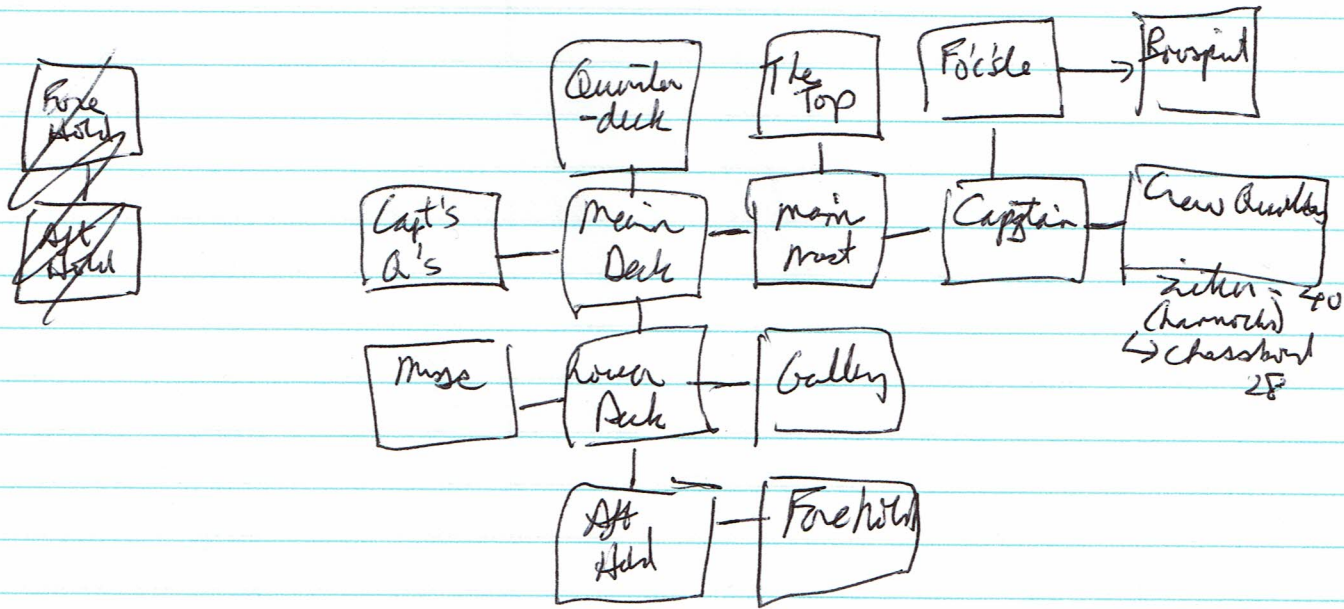 Fore
Hold
Aft
Hold
Quarter
-deck
The
Top
Fo'c'sle
Bowsprit
Capt's
Q's
Main
Deck
Main
Mast
Capstain
Crew Quarters
40
(hammocks)
↳ chessboard
28
Lower
Deck
Galley
Aft
Hold
Forehold